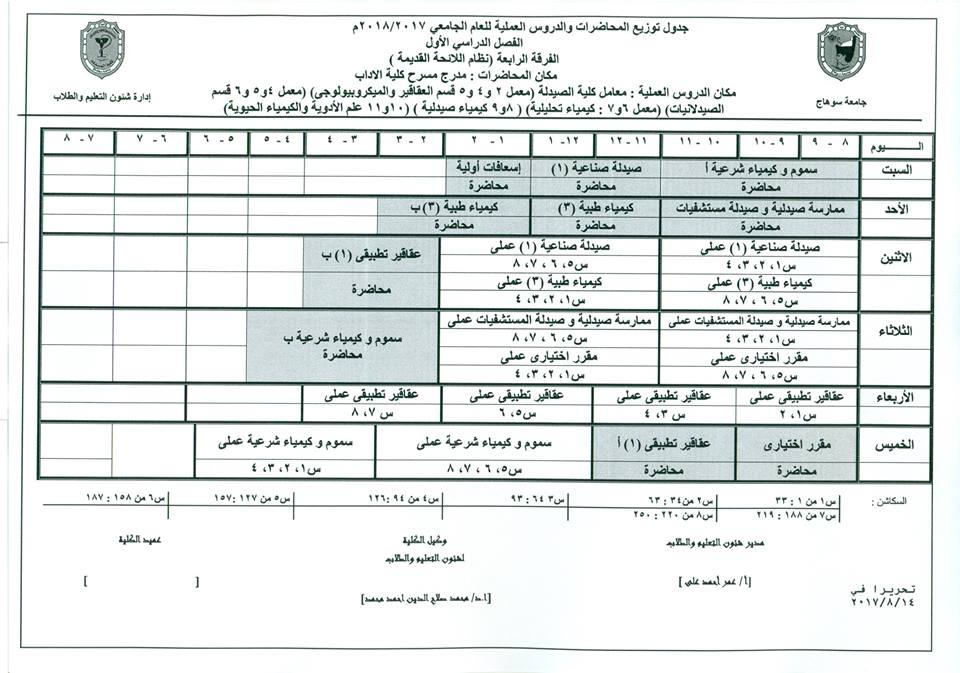 جدول توزيع المحاضرات والدروس العملية للعام الجامعي ٢٠١٨/٢٠١٧م
الفصل الدراسي الأول
الفرقة الرابعة (نظام اللائحة القديمة)
مكان المحاضرات : مدرج مسرح كلية الاداب
مكان الدروس العملية : معامل كلية الصيدلة (معمل ٢ و٤ و٥ قسم العقاقير والميكروبيولوجى) (معمل ٤ و٥ و٦ قسم
الصيدلانيات) (معمل ٦ و٧ : كيمياء تحليلية) (٨ و٩ كيمياء صيدلية ) (١٠ و١١ علم الأدوية والكيمياء الحيوية)
جامعة سوهاج
إدارة شئون التعليم والطلاب
اليـــــــوم ٨ - ٩ ٩ - ١٠ ١٠ - ١١ ١١ - ١٢ ١٢ - ١ ١ - ٢ ٢ - ٣ ٣ - ٤ ٤ - ٥ ٥ - ٦ ٦ - ٧ ٧ - ٨
السبت سموم و كيمياء شرعية أ صيدلة صناعية (١) إسعافات أولية
محاضرة محاضرة محاضرة
الأحد ممارسة صيدلية و صيدلة مستشفيات كيمياء طبية (٣) كيمياء طبية (٣) ب
محاضرة محاضرة محاضرة
الاثنين صيدلة صناعية (١) عملى صيدلة صناعية (١) عملى عقاقير تطبيقى (١) ب
س١، ٢، ٣، ٤ س٥، ٦، ٧، ٨
كيمياء طبية (٣) عملى كيمياء طبية (٣) عملى محاضرة
س٥، ٦، ٧، ٨ س١، ٢، ٣، ٤
الثلاثاء ممارسة صيدلية و صيدلة المستشفيات عملى ممارسة صيدلية و صيدلة المستشفيات عملى سموم و كيمياء شرعية ب
س١، ٢، ٣، ٤ س٥، ٦، ٧، ٨ محاضرة
مقرر اختيارى عملى مقرر اختيارى عملى
س٥، ٦، ٧، ٨ س١، ٢، ٣، ٤
الأربعاء عقاقير تطبيقى عملى عقاقير تطبيقى عملى عقاقير تطبيقى عملى عقاقير تطبيقى عملى
س١، ٢ س٣، ٤ س٥، ٦ س٧، ٨
الخميس مقرر اختيارى عقاقير تطبيقى (١) أ سموم و كيمياء شرعية عملى سموم و كيمياء شرعية عملى
محاضرة محاضرة س٥، ٦، ٧، ٨ س١، ٢، ٣، ٤
السكاشن : س١ من ١ : ٣٣ س٢ من ٣٤ : ٦٣ س٣ ٦٤ : ٩٣ س٤ من ٩٤ : ١٢٦ س٥ من ١٢٧ : ١٥٧ س٦ من ١٥٨ : ١٨٧
س٧ من ١٨٨ : ٢١٩ س٨ من ٢٢٠ : ٢٥٠
مدير شئون التعليم والطلاب وكيل الكلية عميد الكلية
لشئون التعليم والطلاب
[أ/ عمر احمد على ] [ ]
[ا.د/ محمد صلاح الدين احمد محمد]
تحريرا في
٢٠١٧/٨/١٤